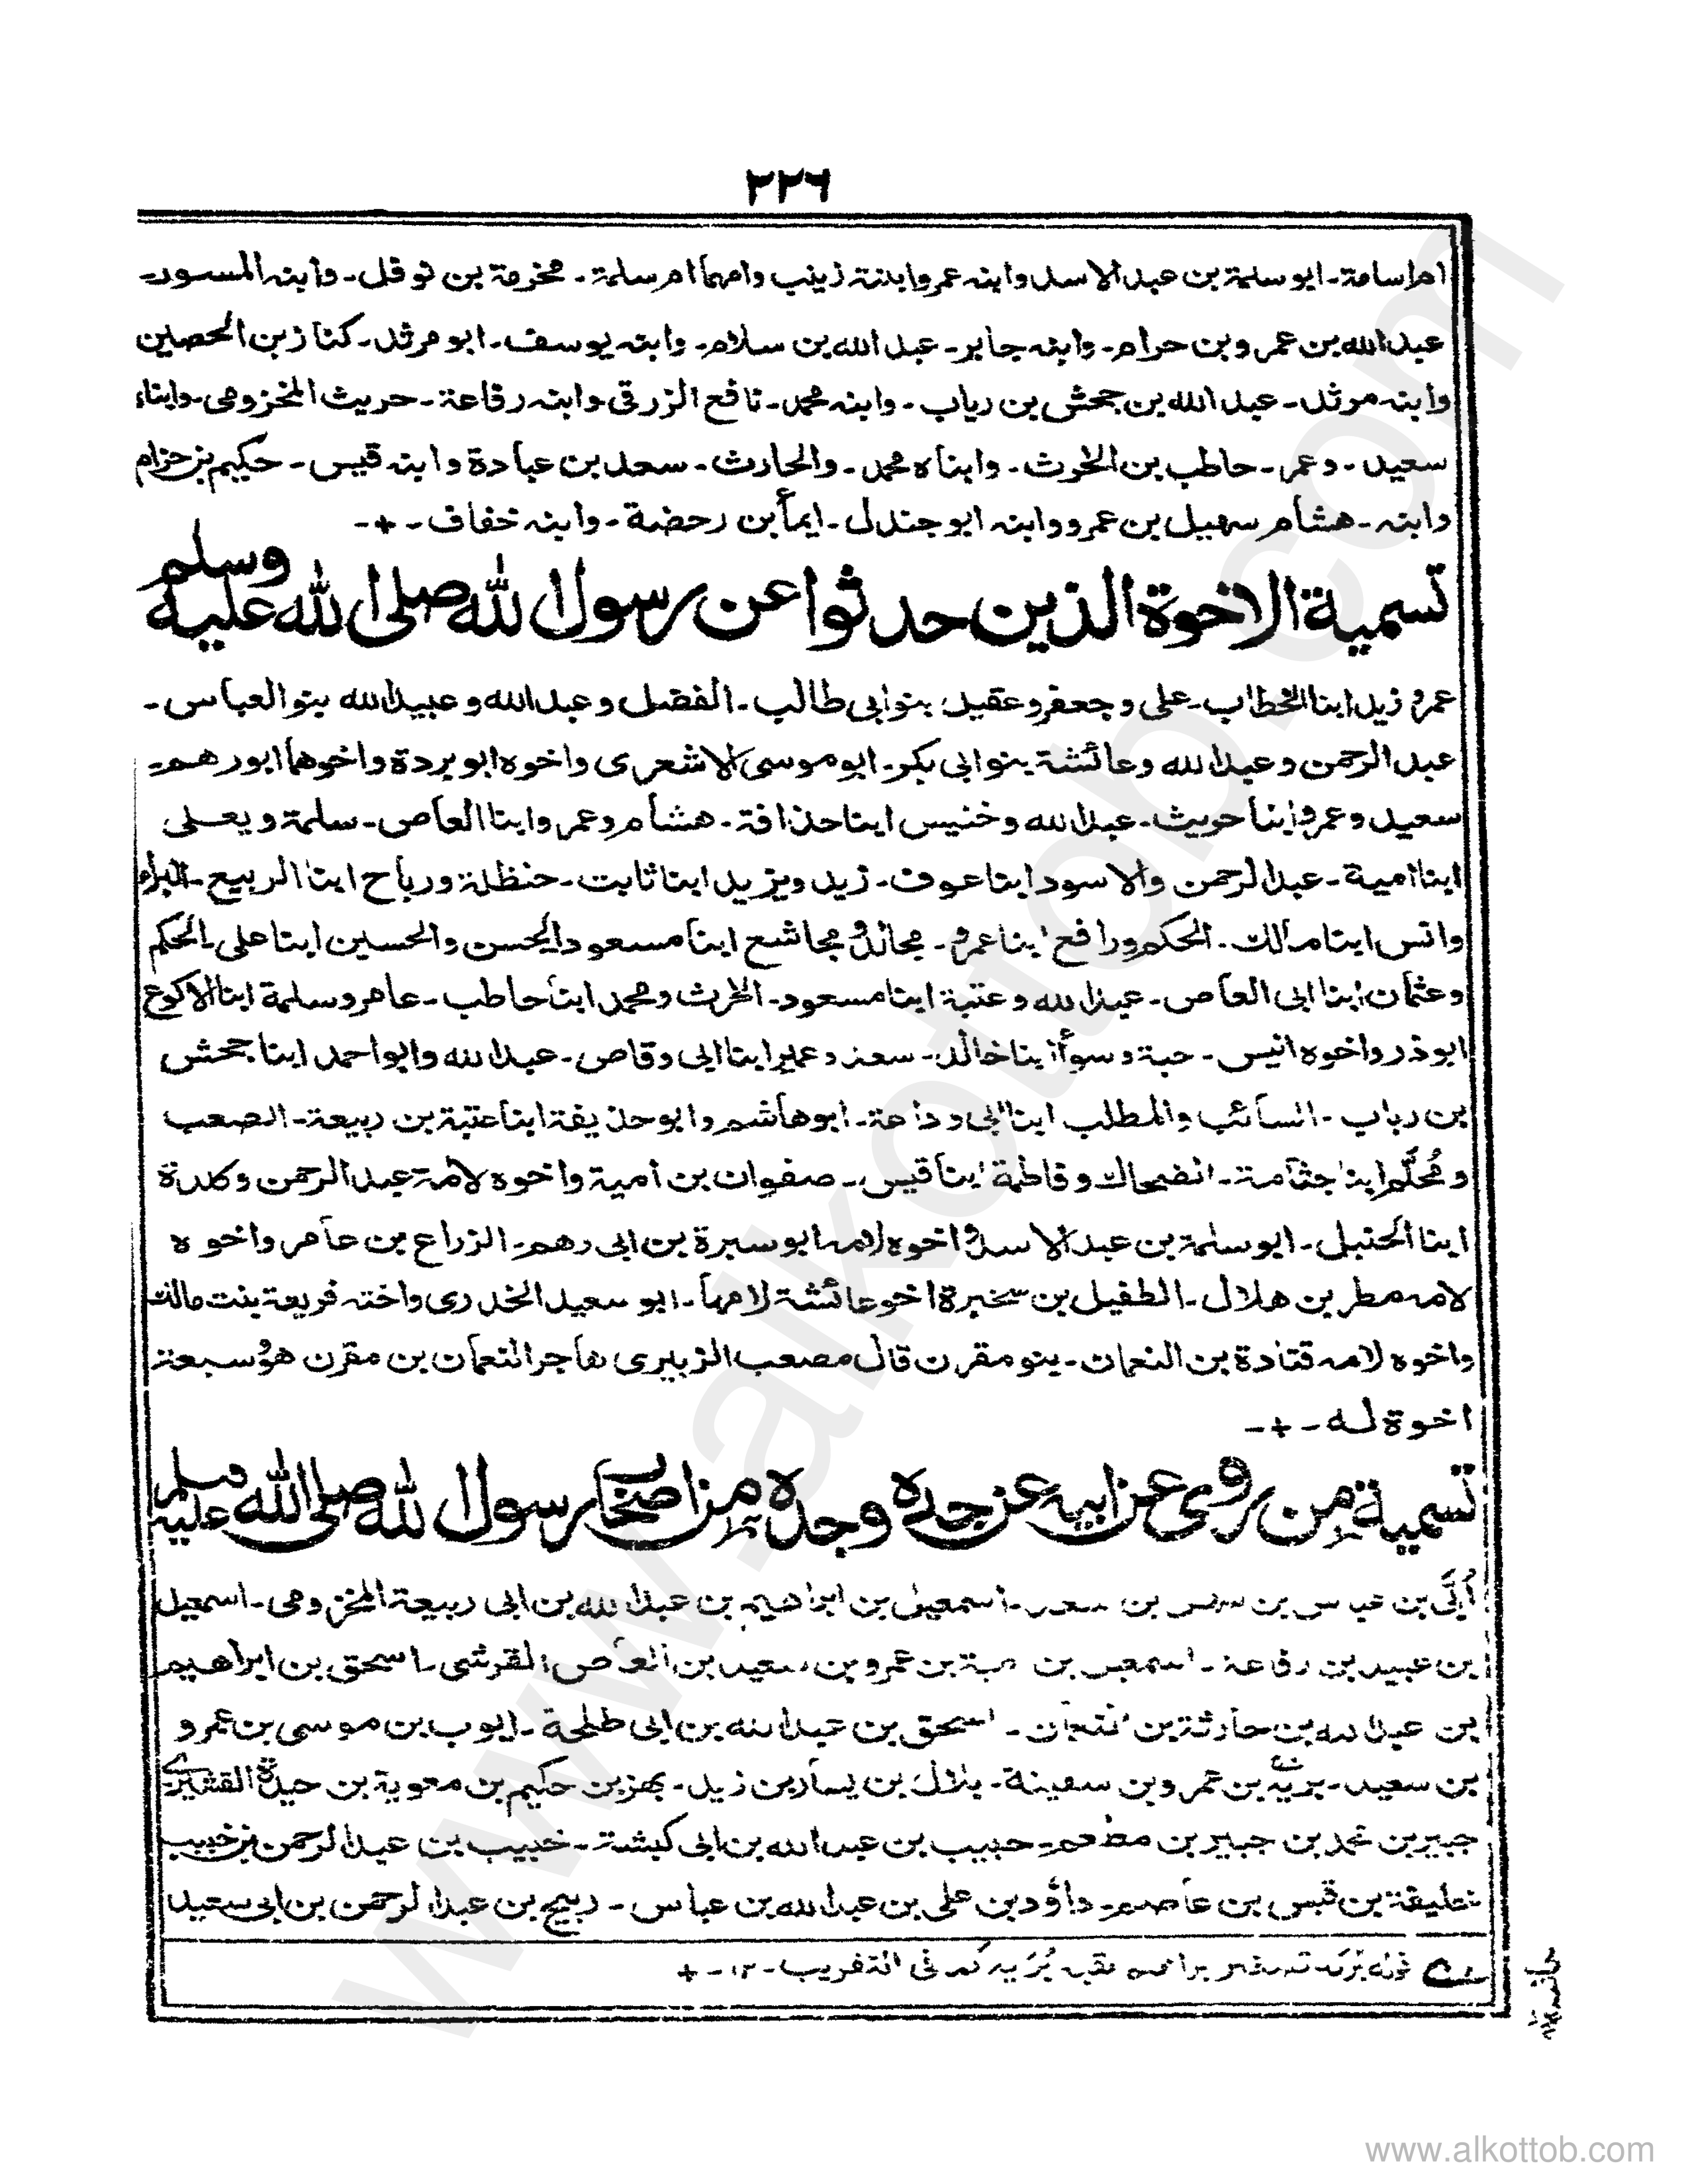 ٢٢٦
ام اسامة۔ ابو سلمة بن عبد الاسد وابنه عمر وابنته زينب وامهما ام سلمة۔ مخرمة بن نوفل۔ وابنه المسور۔
عبد الله بن عمرو بن حرام۔ وابنه جابر۔ عبد الله بن سلام۔ وابنه يوسف۔ ابو مرثد۔ كناز بن الحصين
وابنه مرثد۔ عبد الله بن جحش بن رياب۔ وابنه محمد۔ نافع الزرقى۔ وابنه رفاعة۔ حريث المخزومى۔ وابناه
سعيد۔ وعمر۔ حاطب بن الحٰرث۔ وابناه محمد۔ والحارث۔ سعد بن عبادة وابنه قيس۔ حكيم بن حزام
وابنه۔ هشام سهيل بن عمرو وابنه ابو جندل۔ ايمأ بن رحضة۔ وابنه خفاف۔+۔
تسمية الاخوة الذين حدثوا عن رسول الله صلى الله عليه وسلم
عمر و زيد ابنا الخطاب۔ على وجعفر وعقيل بنو ابى طالب۔ الفضل وعبد الله وعبيد الله بنو العباس۔
عبد الرحمن وعبد الله وعائشة بنو ابى بكر۔ ابو موسى الاشعرى واخوه ابو بردة واخوهما ابو رهم۔
سعيد وعمرو ابنا حريث۔ عبد الله وخنيس ابنا حذافة۔ هشام وعمر وابنا العاص۔ سلمة ويعلى
ابنا امية۔ عبد الرحمن والاسود ابنا عوف۔ زيد ويزيد ابنا ثابت۔ حنظلة ورباح ابنا الربيع۔ البراء
وانس ابنا مالك۔ الحكم ورافع ابنا عمرو۔ مجالد و مجاشع ابنا مسعود۔ الحسن والحسين ابنا على۔ الحكم
وعثمان ابنا ابى العاص۔ عبد الله وعتبة ابنا مسعود۔ الحٰرث ومحمد ابنا حاطب۔ عامر وسلمة ابنا الاكوع
ابوذر واخوه انيس۔ حبة وسوأ ابنا خالد۔ سعد وعمير ابنا ابى وقاص۔ عبد الله وابو احمد ابنا جحش
بن رياب۔ السائب والمطلب ابنا ابى وداعة۔ ابو هاشم وابو حذيفة ابنا عتبة بن ربيعة۔ الصعب
و مُحلَّم ابنا جثامة۔ الضحاك وفاطمة ابنا قيس۔ صفوان بن امية واخوه لامه عبد الرحمن وكلدة
ابنا الحنبل۔ ابو سلمة بن عبد الاسد و اخوه لامه ابو سبرة بن ابى رهم۔ الزراع بن عامر واخوه
لامه مطر بن هلال۔ الطفيل بن سخبرة اخو عائشة لامها۔ ابو سعيد الخدرى واخته فريعة بنت مالك
واخوه لامه قتادة بن النعمان۔ بنو مقرن قال مصعب الزبيرى هاجر النعمان بن مقرن هو وسبعة
اخوة له۔+۔
تسمية من روى عن ابيه عن جده وجده من اصحاب رسول الله صلى الله عليه وسلم
أُبَىّ بن عباس بن سهل بن سعد۔ اسمعيل بن ابراهيم بن عبد الله بن ابى ربيعة المخزومى۔ اسمعيل
بن عبيد بن رفاعة۔ اسمعيل بن امية بن عمرو بن سعيد بن العاص القرشى۔ اسحق بن ابراهيم
بن عبد الله بن حارثة بن النعمان۔ اسحق بن عبد الله بن ابى طلحة۔ ايوب بن موسى بن عمرو
بن سعيد۔ بريه بن عمرو بن سفينة۔ بلال بن يسار بن زيد۔ بهز بن حكيم بن معوية بن حيدة القشيرى
جبير بن محمد بن جبير بن مطعم۔ حبيب بن عبد الله بن ابى كبشة۔ خبيب بن عبد الرحمن بن خبيب
خليفة بن قيس بن عاصم۔ داؤد بن على بن عبد الله بن عباس۔ ربيح بن عبد الرحمن بن ابى سعيد
قوله بريه لقبه بُرَيه فى التقريب۔ ١٢۔+
www.alkottob.com
www.alkottob.com